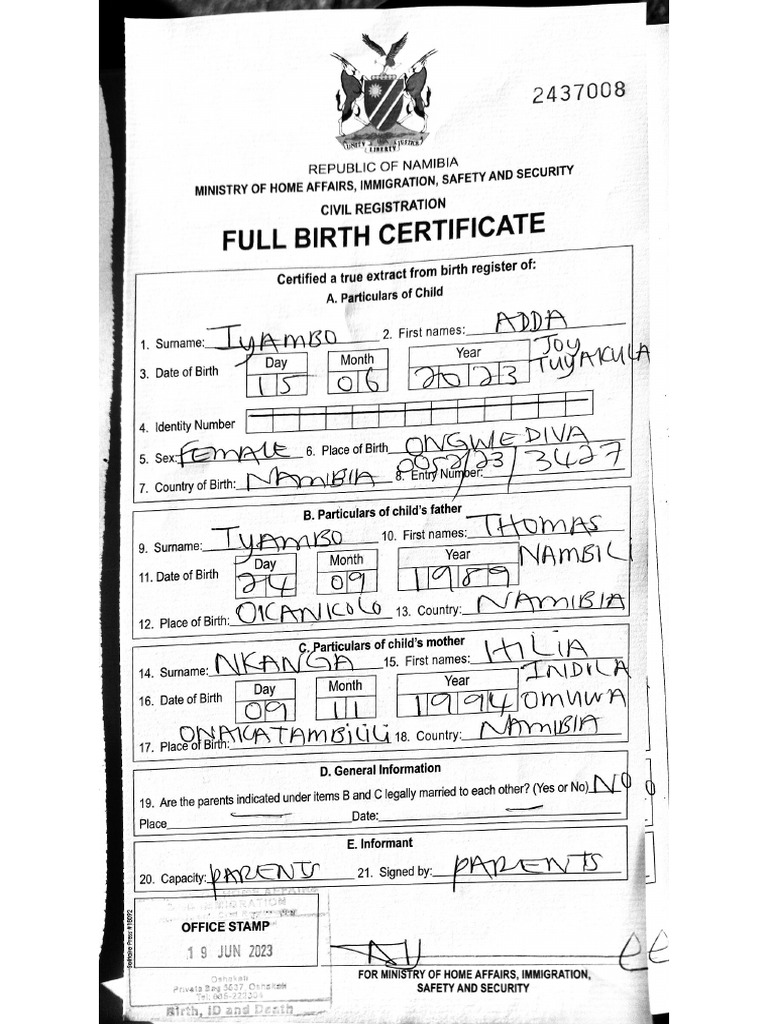 2437008
UNITY LIBERTY JUSTICE
REPUBLIC OF NAMIBIA
MINISTRY OF HOME AFFAIRS, IMMIGRATION, SAFETY AND SECURITY
CIVIL REGISTRATION
FULL BIRTH CERTIFICATE
Certified a true extract from birth register of:
A. Particulars of Child
1. Surname: IYAMBO 2. First names: ADDA
JOY
TUYAKULA
Day Month Year
3. Date of Birth 15 06 2023
4. Identity Number
5. Sex: FEMALE 6. Place of Birth ONGWEDIVA
7. Country of Birth: NAMIBIA 8. Entry Number: 0052/23/3427
B. Particulars of child's father
9. Surname: IYAMBO 10. First names: THOMAS
NAMBILI
Day Month Year
11. Date of Birth 24 09 1989
12. Place of Birth: OKANKOLO 13. Country: NAMIBIA
C. Particulars of child's mother
14. Surname: NKANGA 15. First names: HILIA
INDILA
OMUWA
Day Month Year
16. Date of Birth 09 11 1994
17. Place of Birth: ONAKATAMBILILI 18. Country: NAMIBIA
D. General Information
19. Are the parents indicated under items B and C legally married to each other? (Yes or No) NO
Place Date:
E. Informant
20. Capacity: PARENTS 21. Signed by: PARENTS
HOME AFFAIRS
IMMIGRATION
OFFICE STAMP
19 JUN 2023
Oshakati
Private Bag 5537, Oshakati
Birth, ID and Death
FOR MINISTRY OF HOME AFFAIRS, IMMIGRATION,
SAFETY AND SECURITY
Solitaire Press #18092